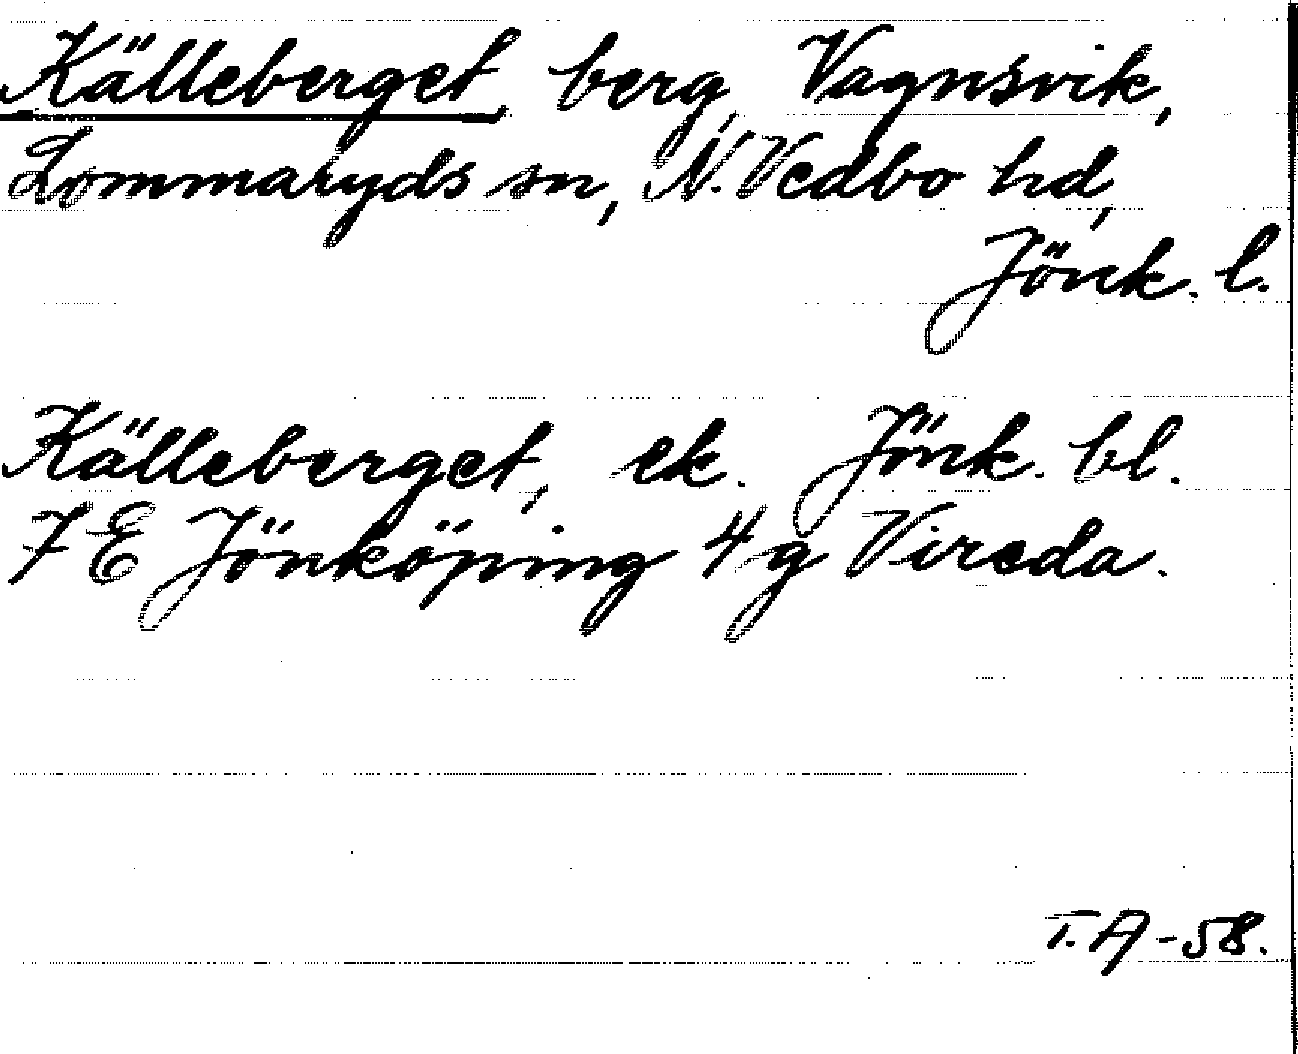 Källeberget, berg, Vagnsvik,
Lommaryds sn, N. Vedbo hd,
Jönk. l.
Källeberget, ek. Jönk. bl.
7 E Jönköping 4 g Vireda.
T. A -58.